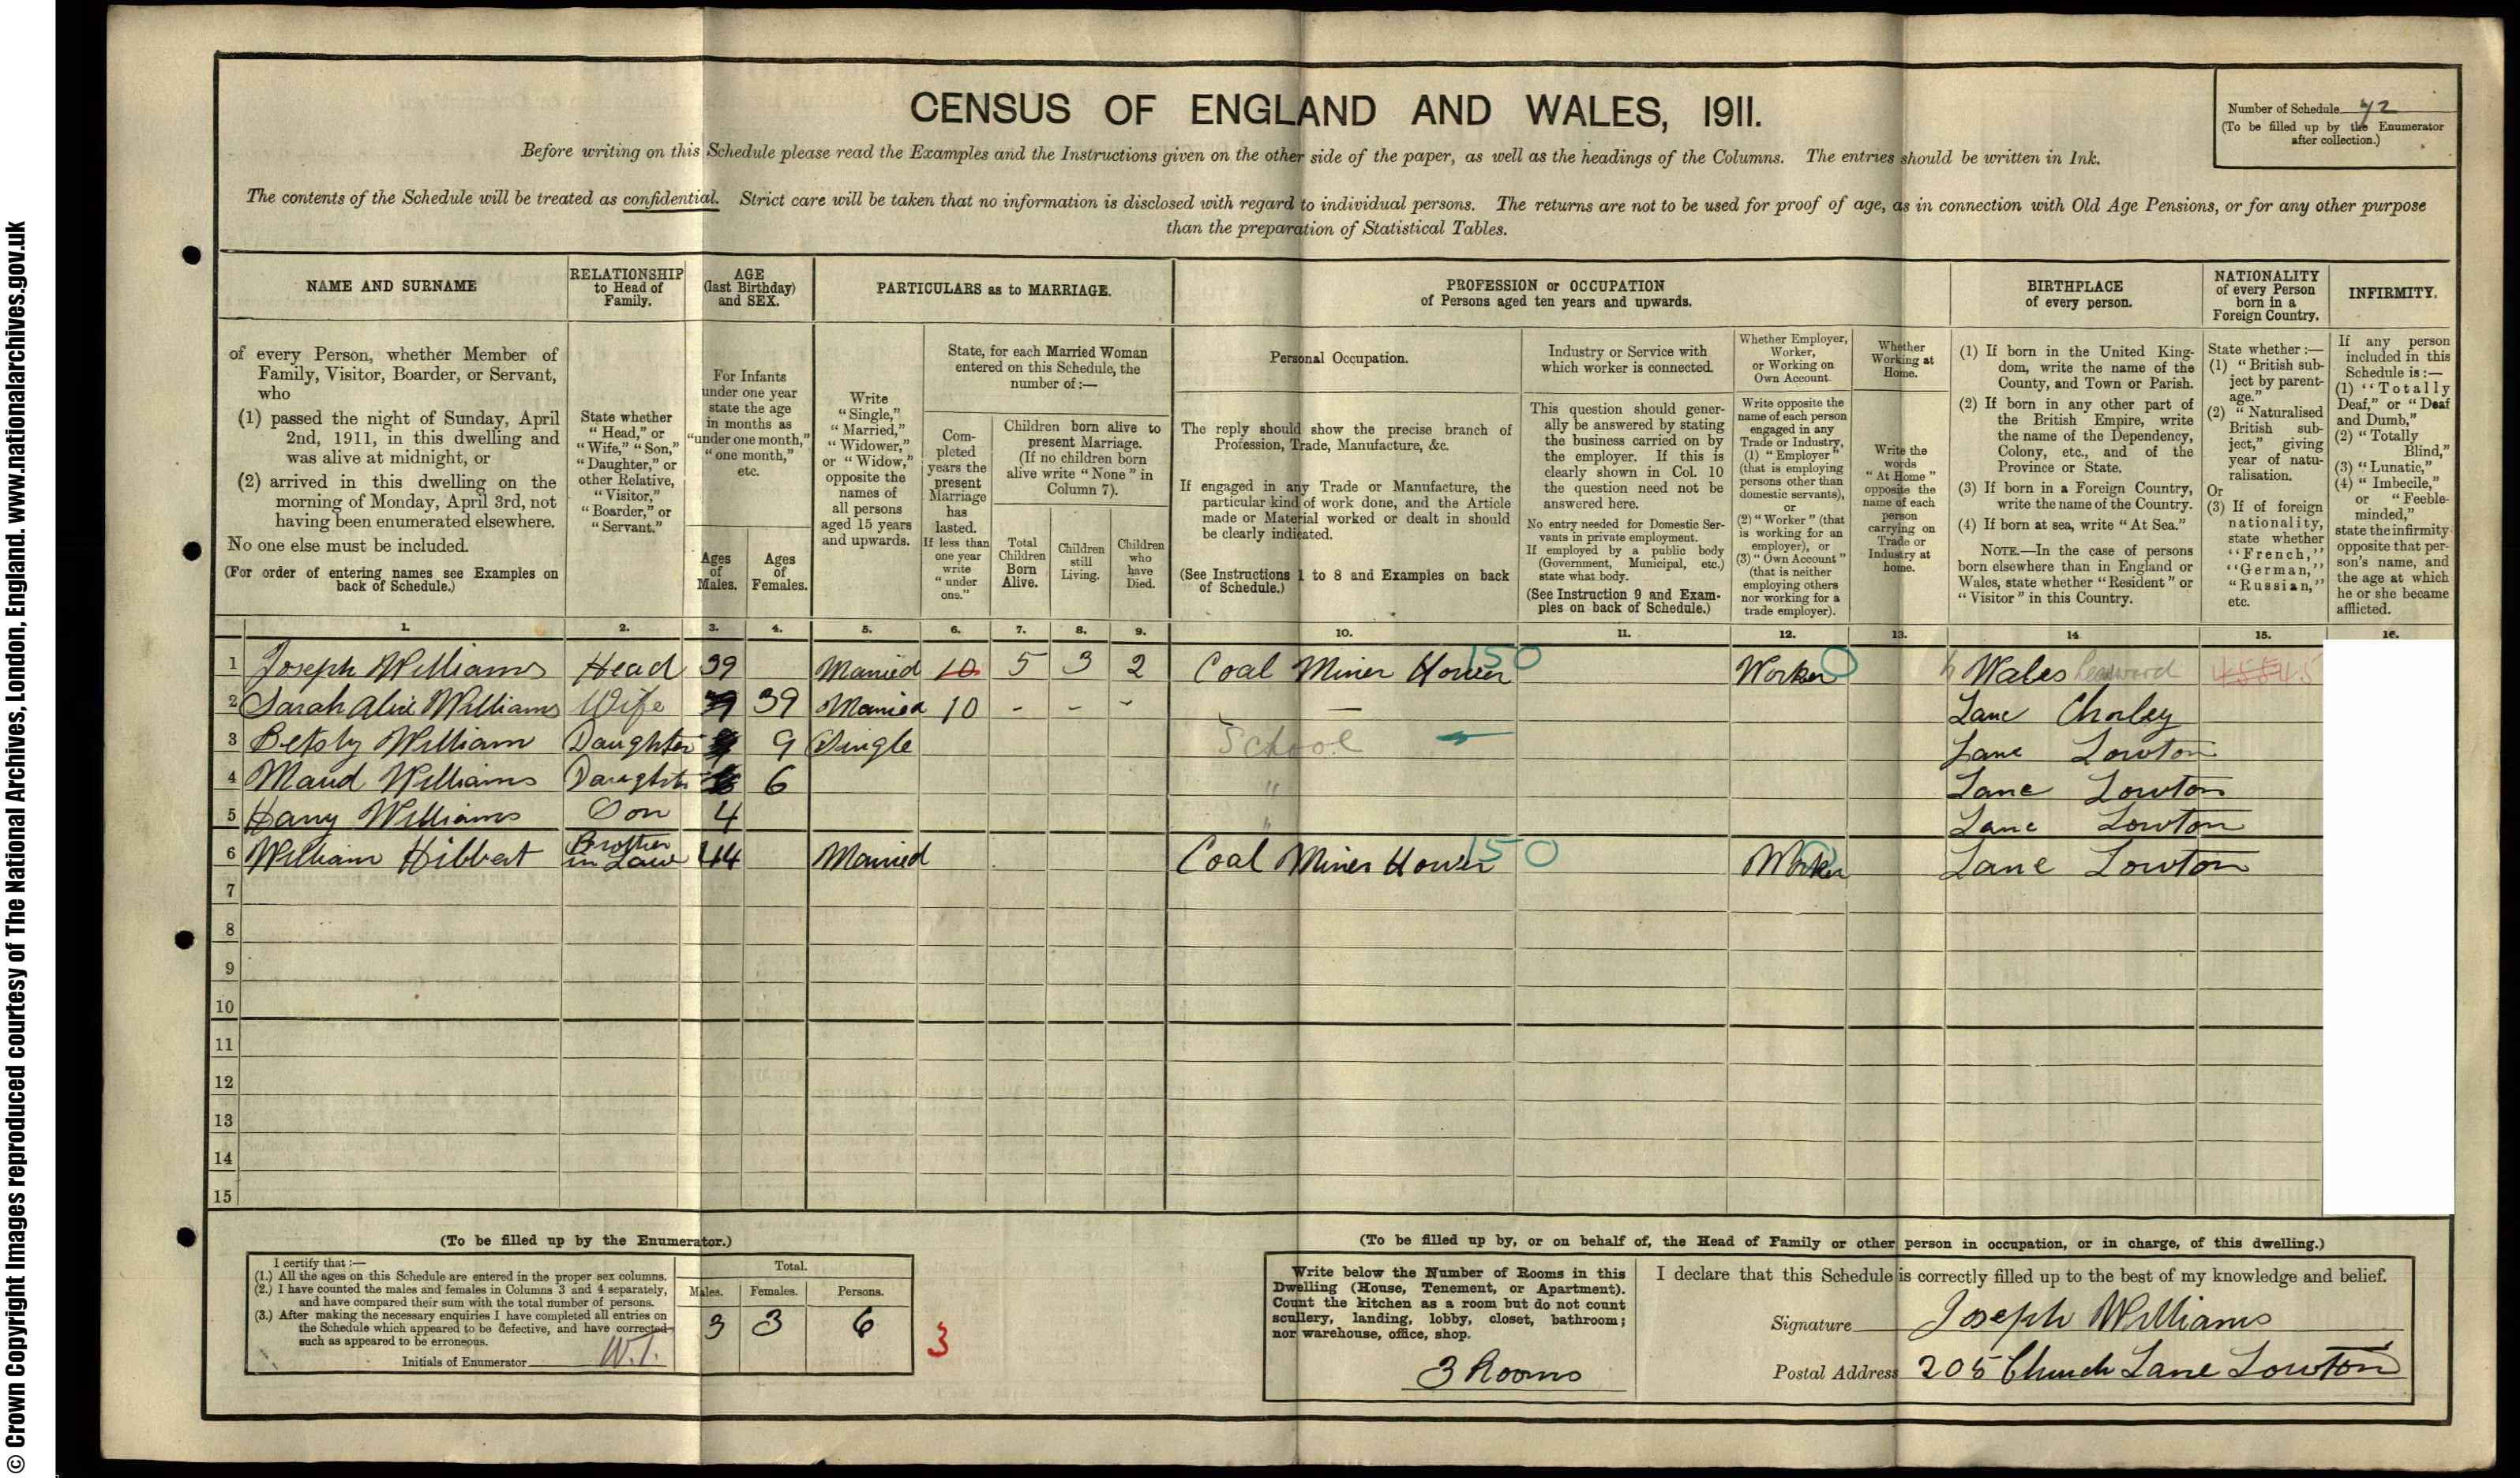 © Crown Copyright Images reproduced courtesy of The National Archives, London, England. www.nationalarchives.gov.uk
CENSUS OF ENGLAND AND WALES, 1911.
Number of Schedule 72
(To be filled up by the Enumerator
after collection.)
Before writing on this Schedule please read the Examples and the Instructions given on the other side of the paper, as well as the headings of the Columns. The entries should be written in Ink.
The contents of the Schedule will be treated as confidential. Strict care will be taken that no information is disclosed with regard to individual persons. The returns are not to be used for proof of age, as in connection with Old Age Pensions, or for any other purpose
than the preparation of Statistical Tables.
NAME AND SURNAME
RELATIONSHIP
to Head of
Family.
AGE
(last Birthday)
and SEX.
PARTICULARS as to MARRIAGE.
PROFESSION or OCCUPATION
of Persons aged ten years and upwards.
BIRTHPLACE
of every person.
NATIONALITY
of every Person
born in a
Foreign Country.
INFIRMITY.
of every Person, whether Member of
Family, Visitor, Boarder, or Servant,
who
(1) passed the night of Sunday, April
2nd, 1911, in this dwelling and
was alive at midnight, or
(2) arrived in this dwelling on the
morning of Monday, April 3rd, not
having been enumerated elsewhere.
No one else must be included.
(For order of entering names see Examples on
back of Schedule.)
State whether
"Head," or
"Wife," "Son,"
"Daughter," or
other Relative,
"Visitor,"
"Boarder," or
"Servant."
For Infants
under one year
state the age
in months as
"under one month,"
"one month,"
etc.
Ages
of
Males.
Ages
of
Females.
Write
"Single,"
"Married,"
"Widower,"
or "Widow,"
opposite the
names of
all persons
aged 15 years
and upwards.
State, for each Married Woman
entered on this Schedule, the
number of :—
Com-
pleted
years the
present
Marriage
has
lasted.
If less than
one year
write
"under
one."
Children born alive to
present Marriage.
(If no children born
alive write "None" in
Column 7).
Total
Children
Born
Alive.
Children
still
Living.
Children
who
have
Died.
Personal Occupation.
The reply should show the precise branch of
Profession, Trade, Manufacture, &c.
If engaged in any Trade or Manufacture, the
particular kind of work done, and the Article
made or Material worked or dealt in should
be clearly indicated.
(See Instructions 1 to 8 and Examples on back
of Schedule.)
Industry or Service with
which worker is connected.
This question should gener-
ally be answered by stating
the business carried on by
the employer. If this is
clearly shown in Col. 10
the question need not be
answered here.
No entry needed for Domestic Ser-
vants in private employment.
If employed by a public body
(Government, Municipal, etc.)
state what body.
(See Instruction 9 and Exam-
ples on back of Schedule.)
Whether Employer,
Worker,
or Working on
Own Account.
Write opposite the
name of each person
engaged in any
Trade or Industry,
(1) "Employer"
(that is employing
persons other than
domestic servants),
or
(2) "Worker" (that
is working for an
employer), or
(3) "Own Account"
(that is neither
employing others
nor working for a
trade employer).
Whether
Working at
Home.
Write the
words
"At Home"
opposite the
name of each
person
carrying on
Trade or
Industry at
home.
(1) If born in the United King-
dom, write the name of the
County, and Town or Parish.
(2) If born in any other part of
the British Empire, write
the name of the Dependency,
Colony, etc., and of the
Province or State.
(3) If born in a Foreign Country,
write the name of the Country.
(4) If born at sea, write "At Sea."
NOTE.—In the case of persons
born elsewhere than in England or
Wales, state whether "Resident" or
"Visitor" in this Country.
State whether :—
(1) "British sub-
ject by parent-
age."
(2) "Naturalised
British sub-
ject," giving
year of natu-
ralisation.
Or
(3) If of foreign
nationality,
state whether
"French,"
"German,"
"Russian,"
etc.
If any person
included in this
Schedule is :—
(1) "Totally
Deaf," or "Deaf
and Dumb,"
(2) "Totally
Blind,"
(3) "Lunatic,"
(4) "Imbecile,"
or "Feeble-
minded,"
state the infirmity
opposite that per-
son's name, and
the age at which
he or she became
afflicted.
1. 2. 3. 4. 5. 6. 7. 8. 9. 10. 11. 12. 13. 14 15. 16.
1 Joseph Williams Head 39 Married 10 5 3 2 Coal Miner Hower 150 Worker 0 Wales
2 Sarah Alice Williams Wife 39 Married 10 - - - — Lanc Chorley
3 Betsby William Daughter 9 Single School Lanc Lowton
4 Maud Williams Daughter 6 " Lanc Lowton
5 Harry Williams Son 4 " Lanc Lowton
6 William Hibbert Brother in Law 44 Married Coal Miner Hower 150 Worker Lanc Lowton
7
8
9
10
11
12
13
14
15
(To be filled up by the Enumerator.)
I certify that :—
(1.) All the ages on this Schedule are entered in the proper sex columns.
(2.) I have counted the males and females in Columns 3 and 4 separately,
and have compared their sum with the total number of persons.
(3.) After making the necessary enquiries I have completed all entries on
the Schedule which appeared to be defective, and have corrected
such as appeared to be erroneous.
Initials of Enumerator W.T.
Total.
Males. Females. Persons.
3 3 6
3
(To be filled up by, or on behalf of, the Head of Family or other person in occupation, or in charge, of this dwelling.)
Write below the Number of Rooms in this
Dwelling (House, Tenement, or Apartment).
Count the kitchen as a room but do not count
scullery, landing, lobby, closet, bathroom;
nor warehouse, office, shop.
3 Rooms
I declare that this Schedule is correctly filled up to the best of my knowledge and belief.
Signature Joseph Williams
Postal Address 205 Church Lane Lowton